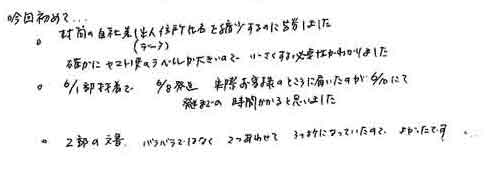 今回初めて...
。封筒の自社差出人住所氏名を縮少するのに苦労しました
(ラベル)
確かにヤマト便のラベルが大きいので、小さくする必要性がわかりました
。6/1部 着で、6/8発送 実際お客様のところに届いたのが6/10にて
発送までの時間がかると思いました
。2部の文書、バラバラではなく 2つあわせて 3つ折になっていたので、よかったです...